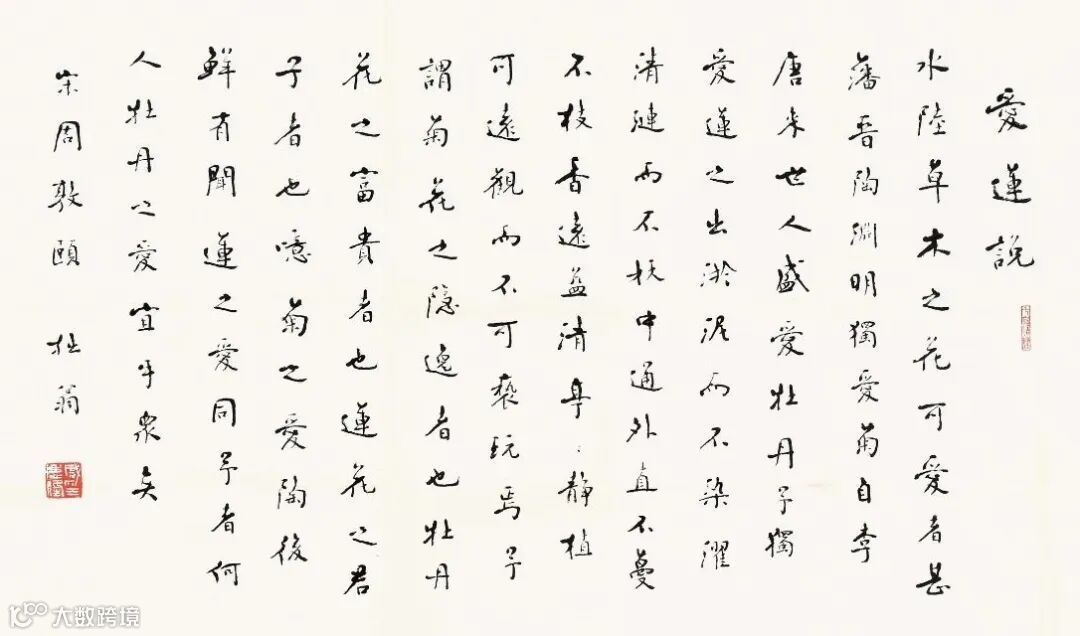 愛蓮説
水陸草木之花可愛者甚
藩晋陶渊明獨愛菊自李
唐来世人盛愛牡丹予獨
愛蓮之出淤泥而不染濯
清漣而不妖中通外直不蔓
不枝香遠益清亭〻静植
可遠觀而不可褻玩焉予
謂菊花之隐逸者也牡丹
花之富貴者也蓮花之君
子者也噫菊之愛陶後
鮮有聞蓮之愛同予者何
人牡丹之愛宜乎衆矣
宋周敦颐 拙翁
大数跨境